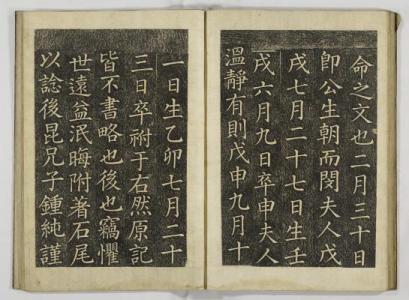 命之文也二月三十日
即公生朝而閔夫人戊
戌七月二十七日生壬
戌六月九日卒申夫人
溫靜有則戊申九月十
一日生乙卯七月二十
三日卒祔于右然原記
皆不書略也後也竊懼
世遠益泯晦附著石尾
以諗後昆兄子鍾純謹